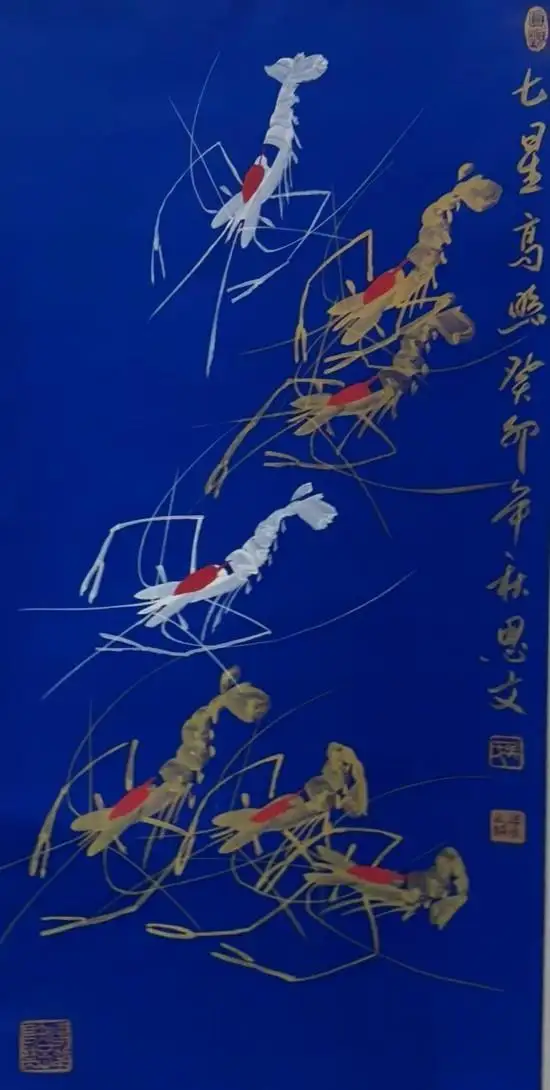 七星高照癸卯年秋思文